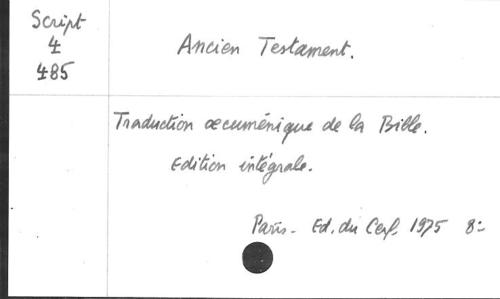 Script
4
485
Ancien Testament.
Traduction œcuménique de la Bible.
Edition intégrale.
Paris - Ed. du Cerf. 1975 8:-